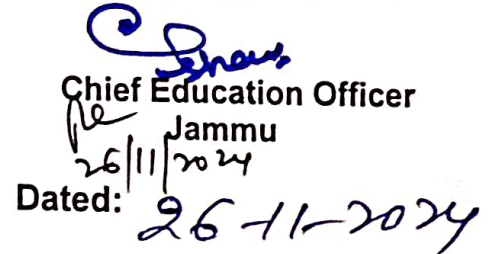 Chief Education Officer
Jammu
26/11/2024
Dated: 26-11-2024